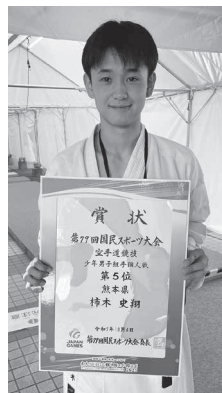 賞状
第79回国民スポーツ大会
空手道競技
少年男子組手個人戦
第5位
熊本県
柿木 史翔
JAPAN
GAMES
第79回国民スポーツ大会会長